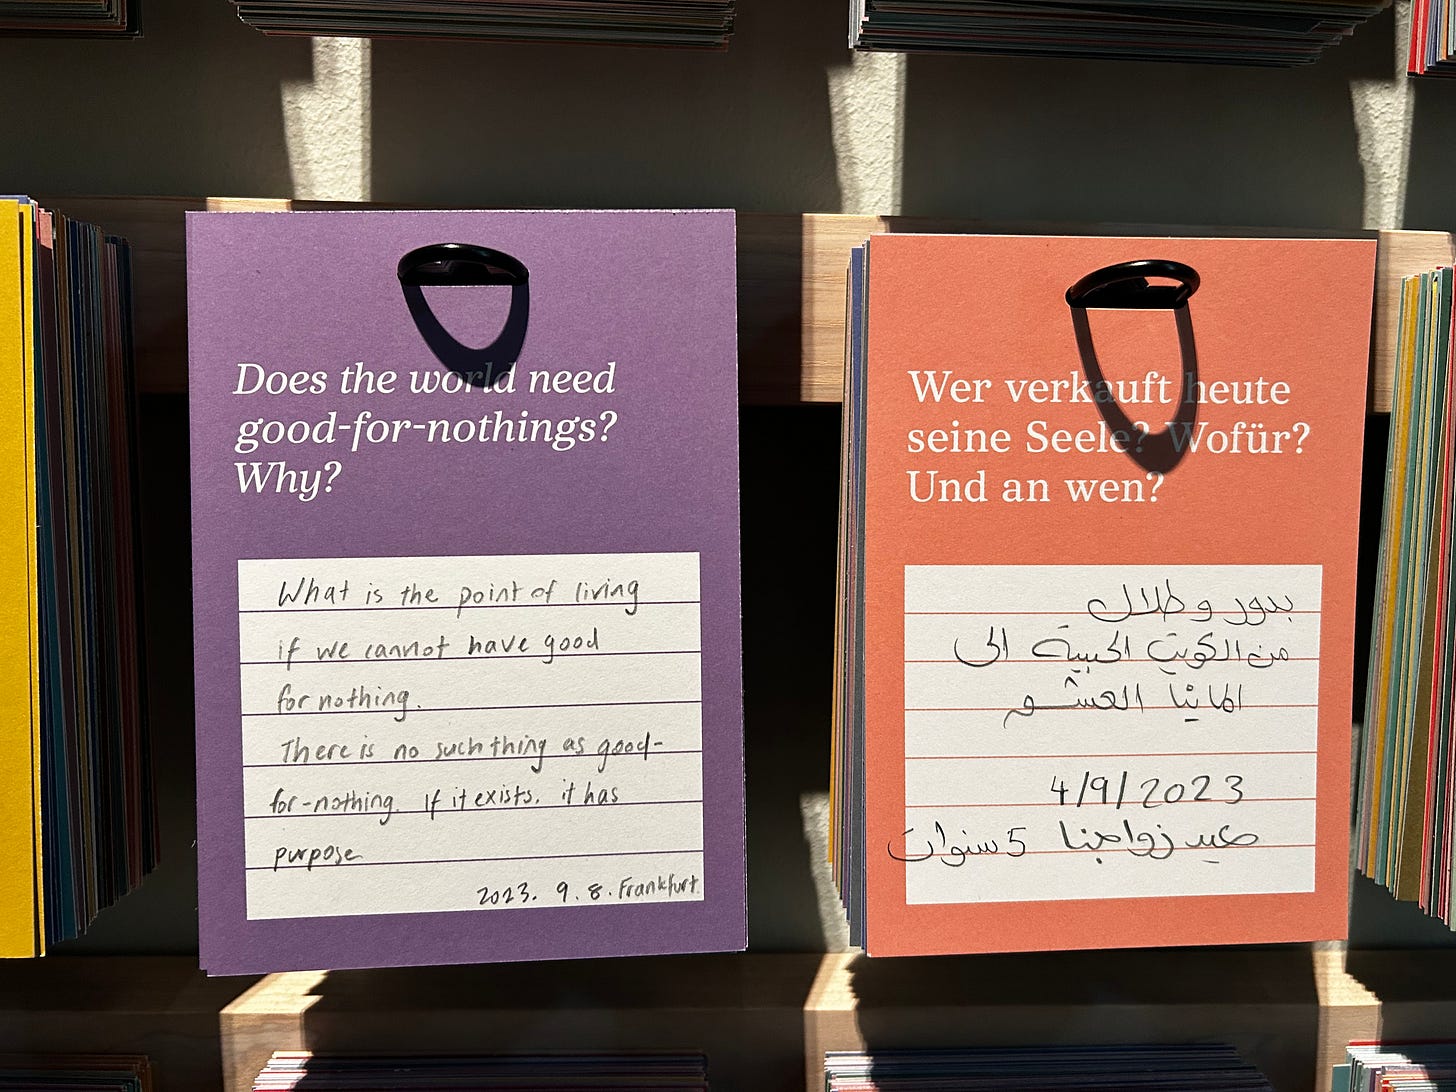 Does the world need
good-for-nothings?
Why?
What is the point of living
if we cannot have good
for nothing.
There is no such thing as good-
for-nothing. If it exists. it has
purpose
2023. 9. 8. Frankfurt.
Wer verkauft heute
seine Seele? Wofür?
Und an wen?
بدور و طلال
من الكويت الحبيبة الى
المانيا العشق
4/9/2023
عيد زواجنا 5 سنوات